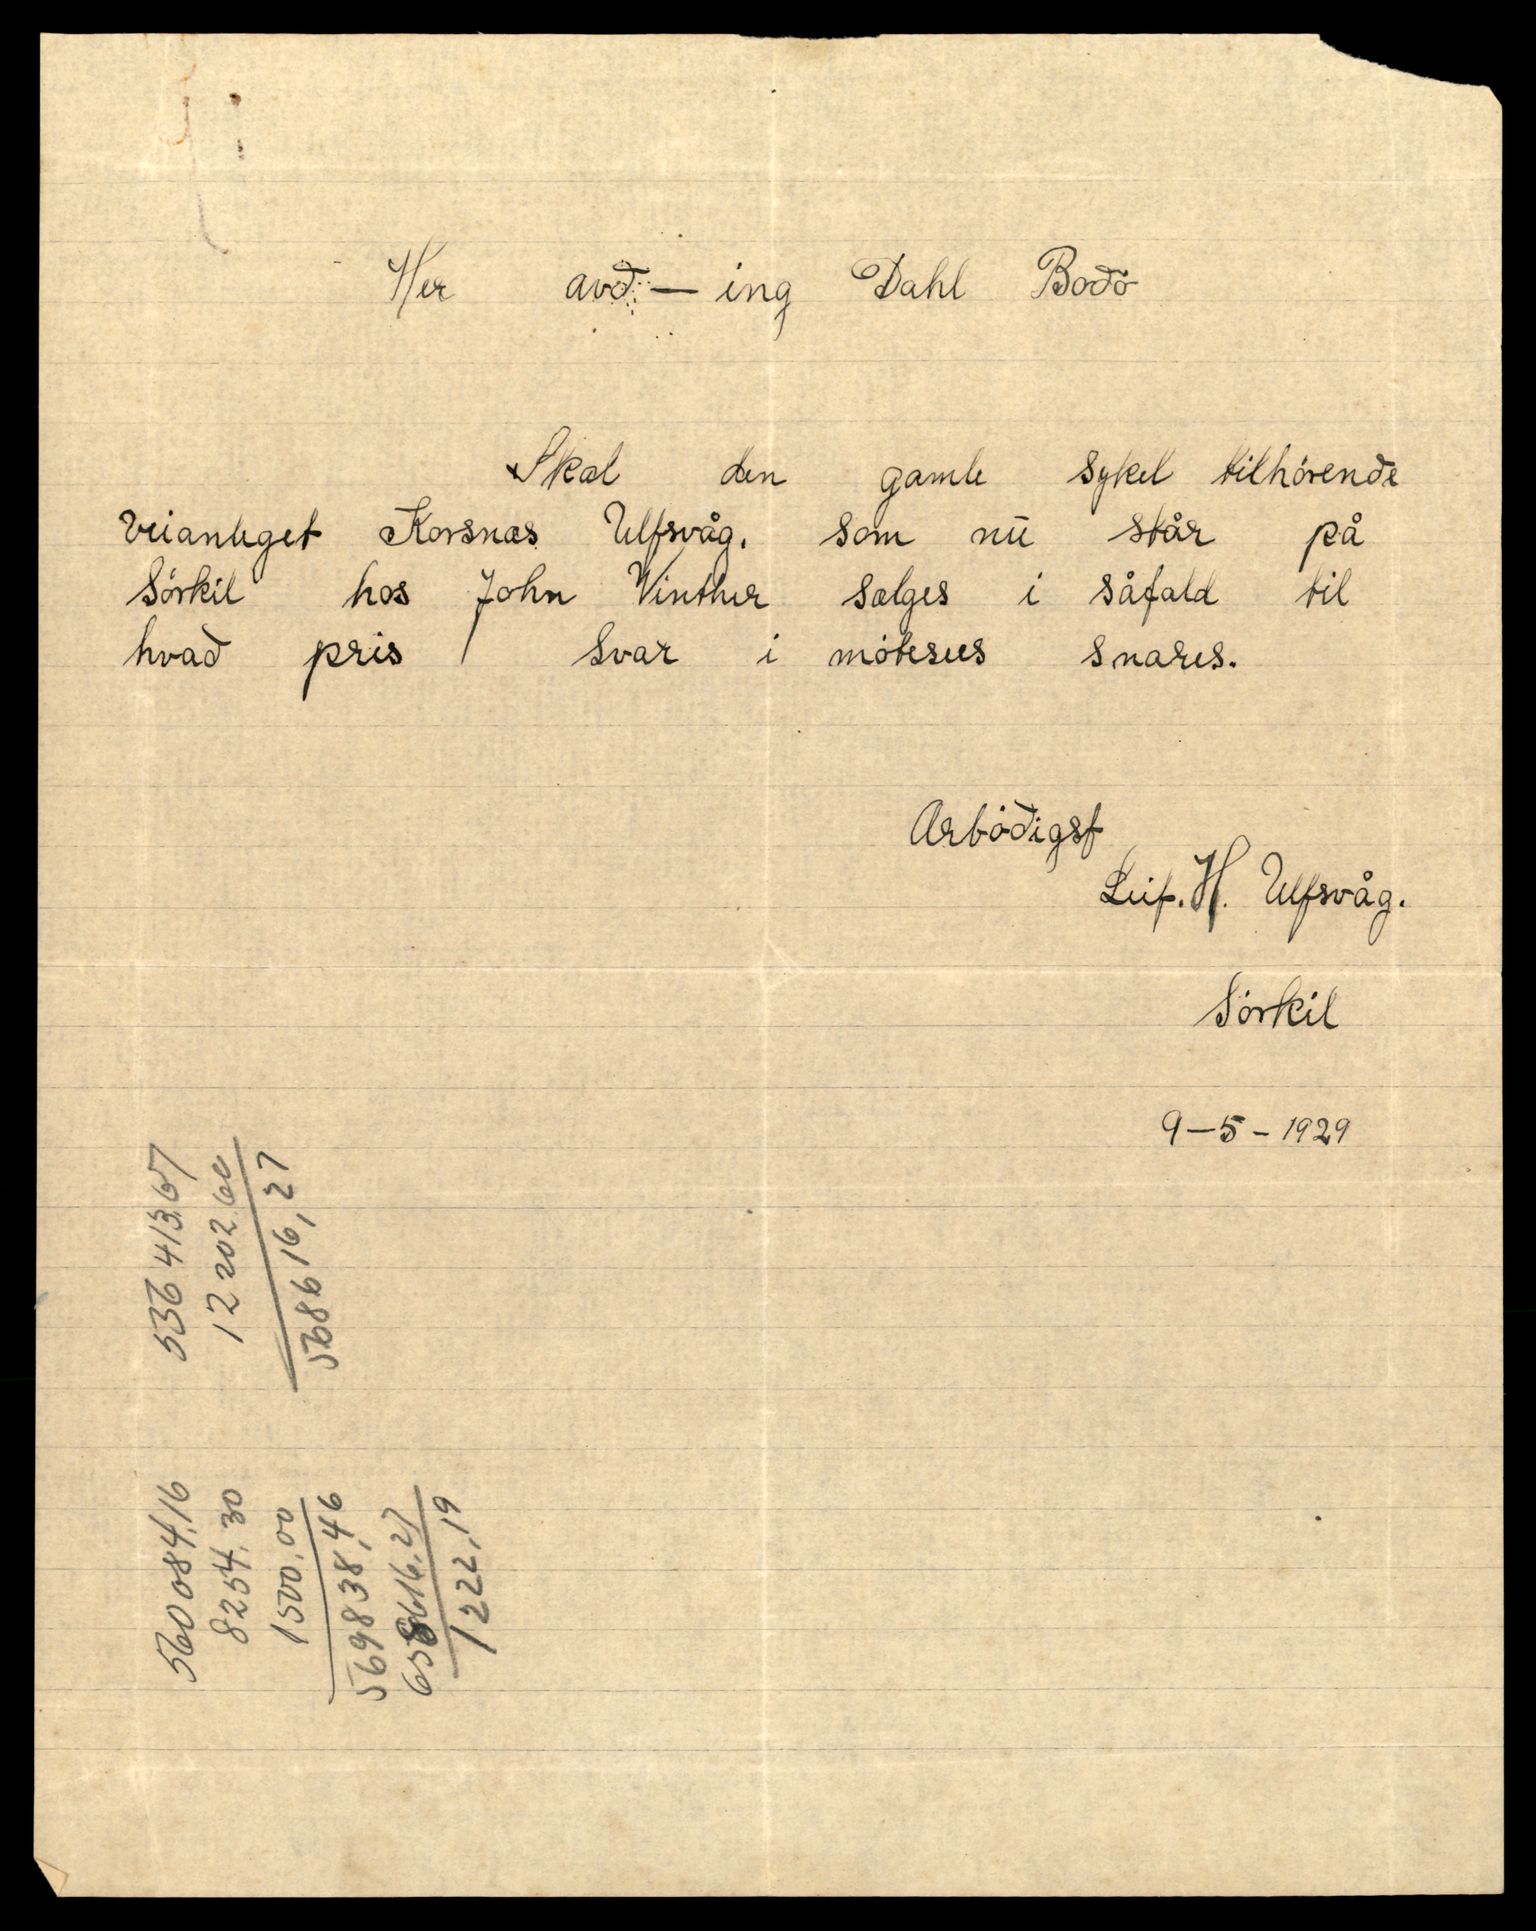 Her avd - ing Dahl Bodö
Skal den gamle sykel tilhörende
veianleget Korsnæs Ulfsvåg. som nu står på
Sörkil hos John Vinther sælges i såfald til
hvad pris / Svar i mötesees snares.
Arbödigst
Leif. H. Ulfsvåg.
Sörkil
9-5-1929
556 413.67
12 202.60
568616,27
560 084,16
8254.30
1500.00
569838,46
568616,27
1222,19